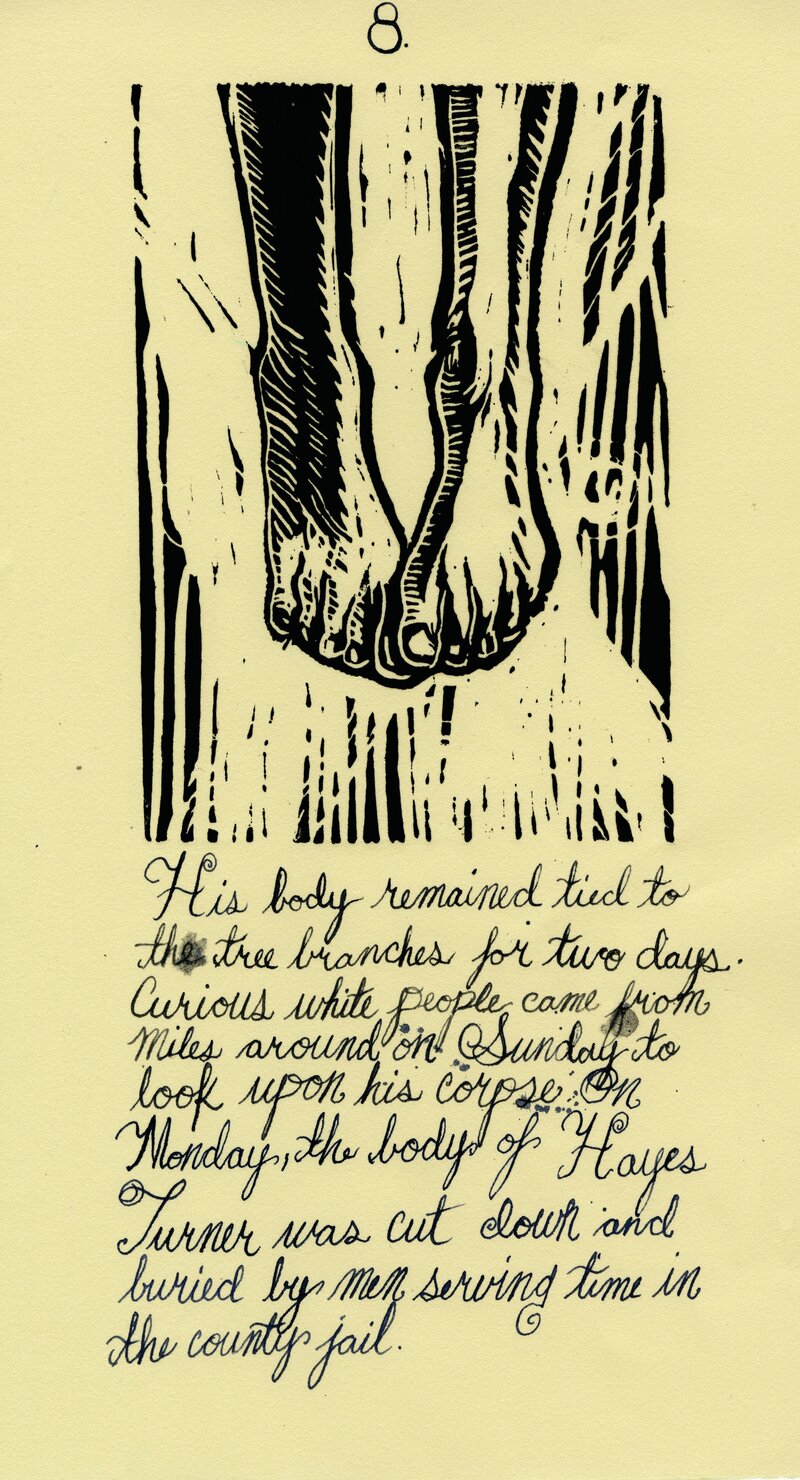 8.
His body remained tied to
the tree branches for two days.
Curious white people came from
Miles around on Sunday to
look upon his corpse. On
Monday, the body of Hayes
Turner was cut down and
buried by men serving time in
the county jail.